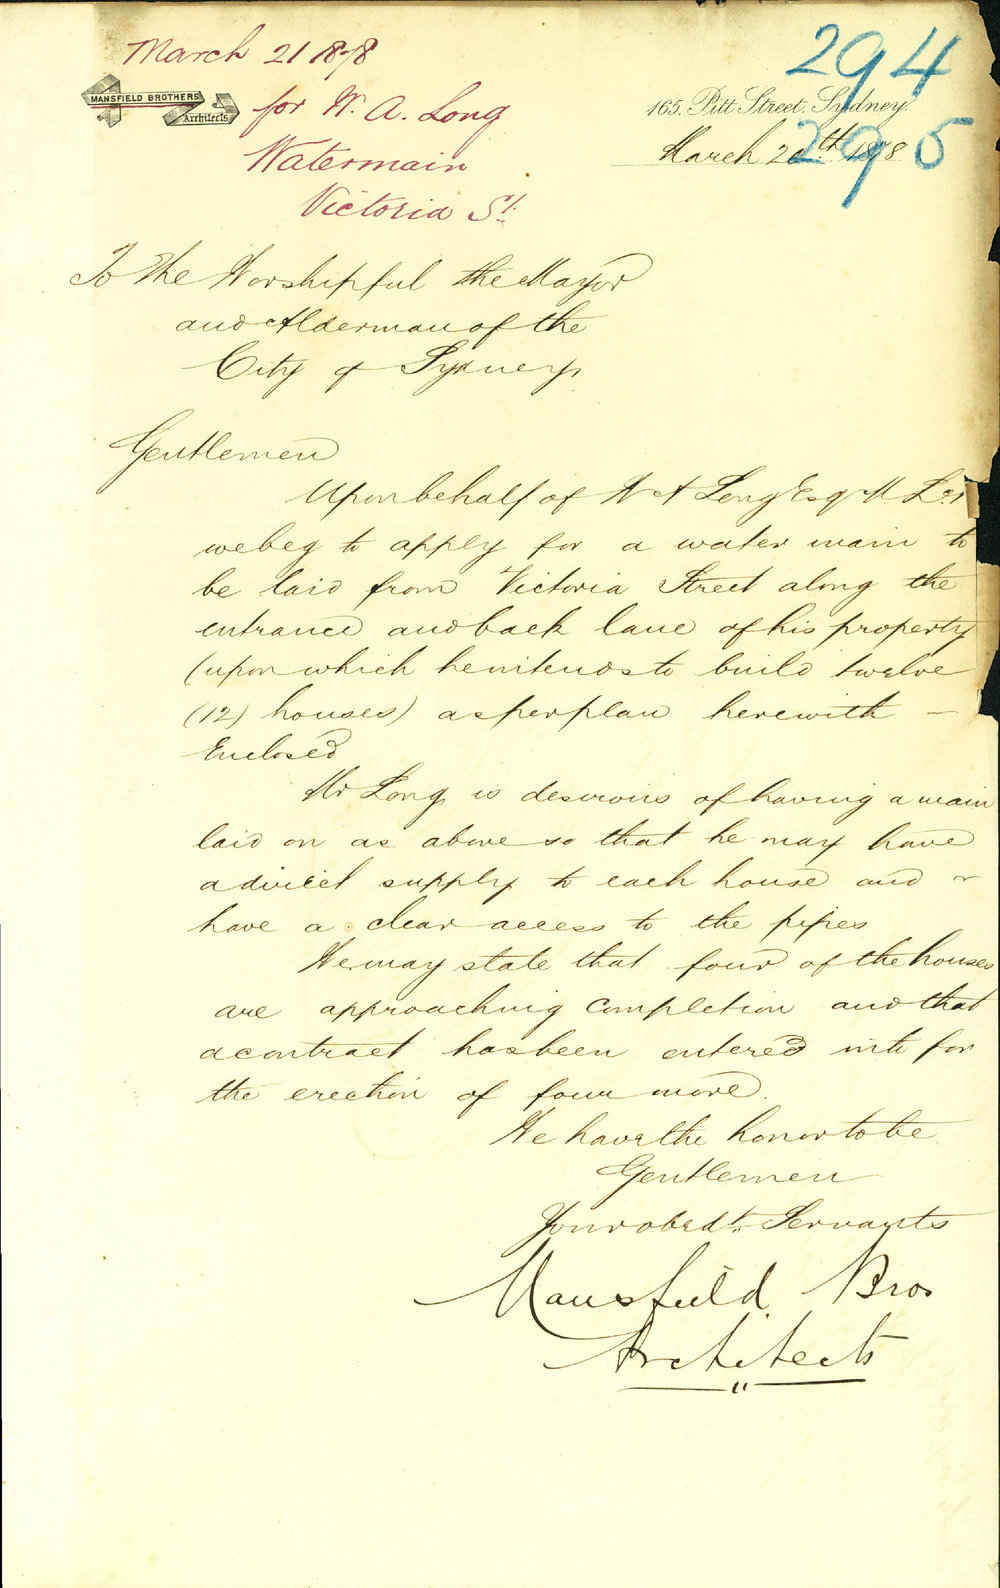 March 21 1878
MANSFIELD BROTHERS
Architects
for W. A. Long
Watermain
Victoria St.
294
295
165. Pitt Street. Sydney.
March 20th 1878
To the Worshipful the Mayor
and Alderman of the
City of Sydney.
Gentlemen
Upon behalf of W A Long Esq M.
we beg to apply for a water main to
be laid from Victoria Street along the
entrance and back lane of his property
(upon which he intends to build twelve
(12) houses) as per plan herewith —
Enclosed
Mr Long is desirous of having a main
laid on as above so that he may have
a direct supply to each house and
have a clear access to the pipes
We may state that four of the houses
are approaching completion and that
a contract has been entered into for
the erection of four more.
We have the honor to be
Gentlemen
Your obedt. Servants
Mansfield Bros
Architects